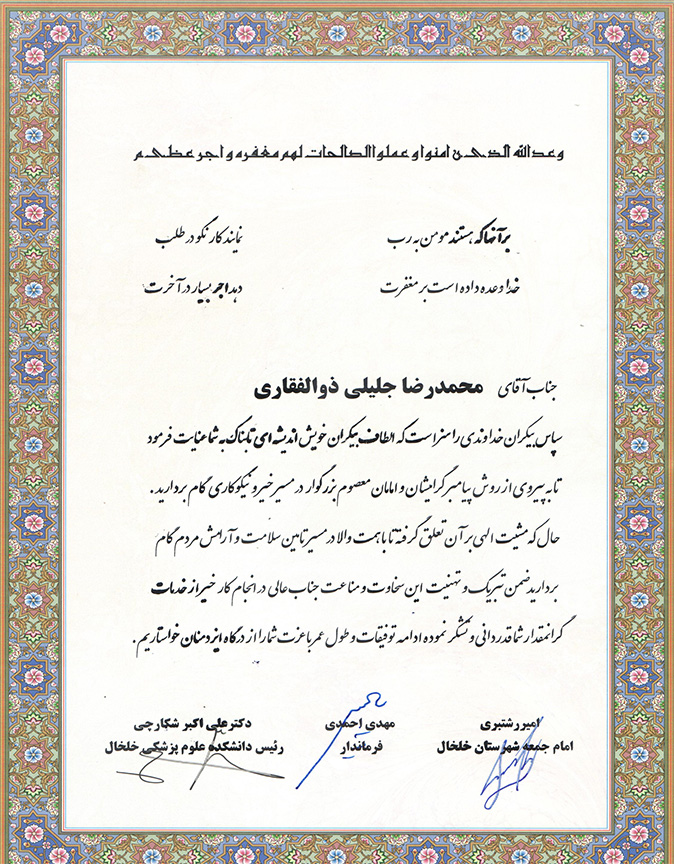 وعدالله الذین امنوا و عملوا الصالحات لهم مغفره و اجر عظیم
بر آنها که هستند مومن به رب نمایند کار نکو در طلب
خدا وعده داده است بر مغفرت دهد اجر بسیار در آخرت
جناب آقای محمدرضا جلیلی ذوالفقاری
سپاس بیکران خداوندی را سزاست که الطاف بیکران خویش اندیشه ای تابناک به شما عنایت فرمود
تا به پیروی از روش پیامبر گرامیشان و امامان معصوم بزرگوار در مسیر خیر و نیکوکاری گام بردارید .
حال که مشیت الهی بر آن تعلق گرفته تا با همت والا در مسیر تامین سلامت و آرامش مردم گام
بردارید ضمن تبریک و تهنیت این سخاوت و مناعت جناب عالی در انجام کار خیر از خدمات
گرانمقدار شما قدردانی و تشکر نموده ادامه توفیقات و طول عمر با عزت شما را از درگاه ایزد منان خواستاریم .
امیر رشتبری مهدی احمدی دکتر علی اکبر شکارچی
امام جمعه شهرستان خلخال فرماندار رئیس دانشکده علوم پزشکی خلخال